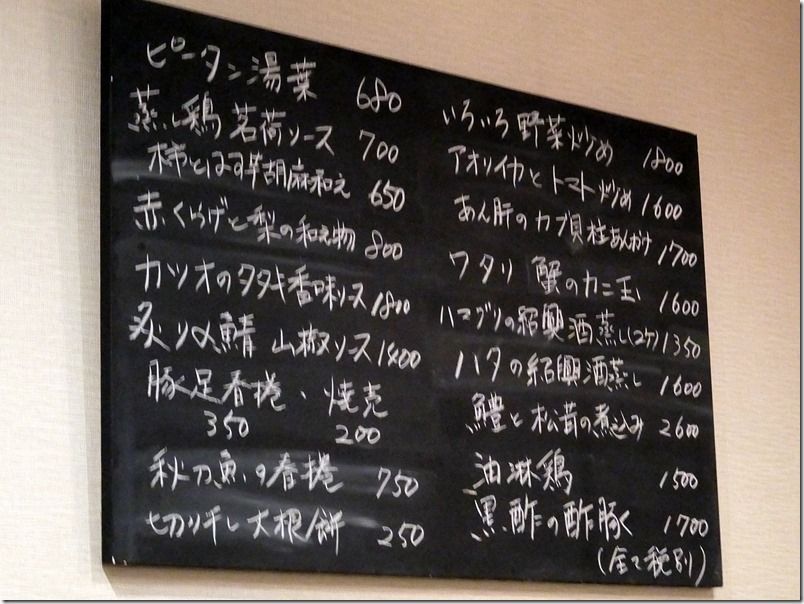 ピータン湯葉 680
蒸し鶏 茗荷ソース 700
柿とほうれん草胡麻和え 650
赤くらげと梨の和え物 800
カツオのタタキ香味ソース 1800
炙り〆鯖 山椒ソース 1400
豚足春捲、焼売
350 200
秋刀魚の春捲 750
切り干し大根餅 250
いろいろ野菜炒め 1800
アオリイカとトマト炒め 1600
あん肝のカブ貝柱あんかけ 1700
ワタリ蟹のカニ玉 1600
ハマグリの紹興酒蒸し(2ケ) 1350
ハタの紹興酒蒸し 1600
鱧と松茸の煮込み 2600
油淋鶏 1500
黒酢の酢豚 1700
(全て税別)